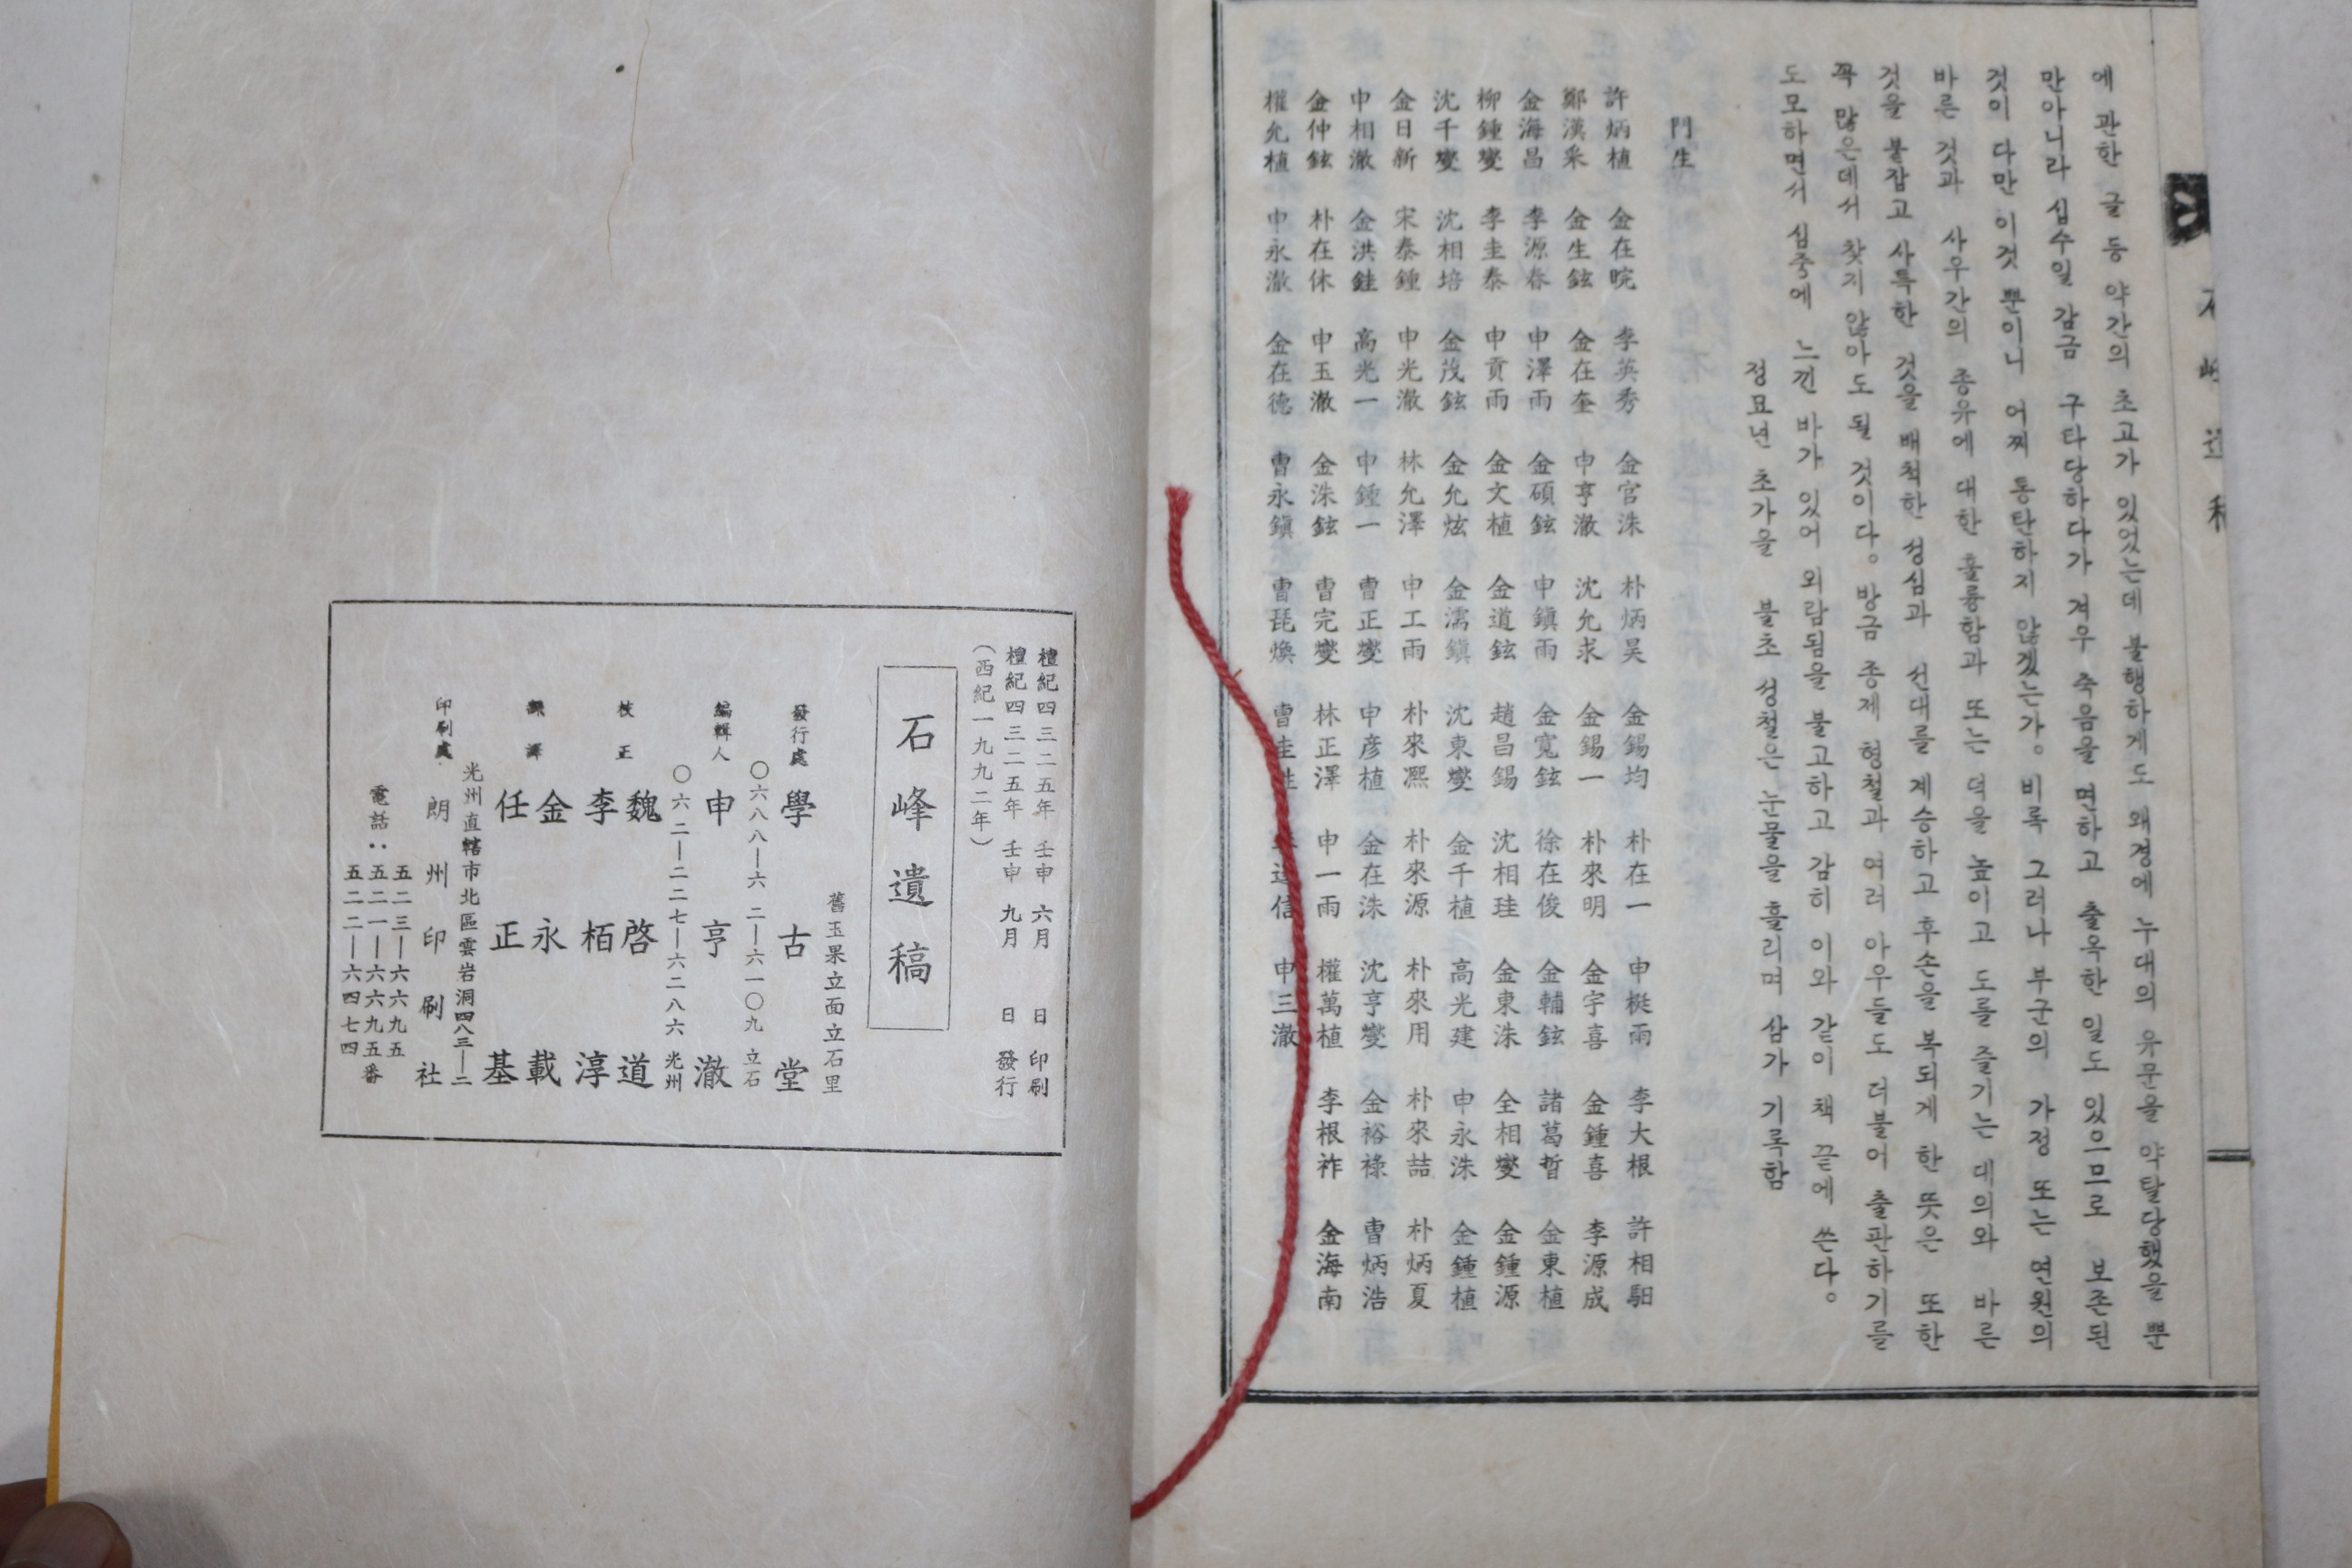 에 관한 글 등 약간의 초고가 있었는데 불행하게도 왜경에 누대의 유문을 약탈당했을 뿐
만아니라 십수일 감금 구타당하다가 겨우 죽음을 면하고 출옥한 일도 있으므로 보존된
것이 다만 이것 뿐이니 어찌 통탄하지 않겠는가。비록 그러나 부군의 가정 또는 연원의
바른 것과 사우간의 종유에 대한 훌륭함과 또는 덕을 높이고 도를 즐기는 대의와 바른
것을 붙잡고 사특한 것을 배척한 성심과 선대를 계승하고 후손을 복되게 한 뜻은 또한
꼭 많은데서 찾지 않아도 될 것이다。방금 종제 형철과 여러 아우들도 더불어 출판하기를
도모하면서 심중에 느낀 바가 있어 외람됨을 불고하고 감히 이와 같이 책 끝에 쓴다。
정묘년 초가을 불초 성철은 눈물을 흘리며 삼가 기록함
門生
許炳植 金在晥 李英秀 金官洙 朴炳昊 金錫均 朴在一 申梃雨 李大根 許相馹
鄭漢采 金生鉉 金在奎 申亨澈 沈允求 金錫一 朴來明 金宇喜 金鍾喜 李源成
金海昌 李源春 申澤雨 金碩鉉 申鎭雨 金寬鉉 徐在俊 金輔鉉 諸葛晢 金東植
柳鍾燮 李圭泰 申貢雨 金文植 金道鉉 趙昌錫 沈相珪 金東洙 全相燮 金鍾源
沈千燮 沈相培 金茂鉉 金允炫 金濡鎭 沈東燮 金千植 高光建 申永洙 金鍾植
金日新 宋泰鍾 申光澈 林允澤 申工雨 朴來凞 朴來源 朴來用 朴來喆 朴炳夏
申相澈 金洪鉎 高光一 申鍾一 曺正燮 申彦植 金在洙 沈亨燮 金裕祿 曺炳浩
金仲鉉 朴在休 申玉澈 金洙鉉 曺完燮 林正澤 申一雨 權萬植 李根祚 金海南
權允植 申永澈 金在德 曺永鎭 曺琵煥 曺圭 信 申三澈
檀紀四三二五年 壬申 六月 日 印刷
檀紀四三二五年 壬申 九月 日 發行
(西紀一九九二年)
石峰遺稿
舊玉果立面立石里
發行處 學古堂
〇六八八—六二—六一〇九 立石
編輯人 申亨澈
〇六二—二二七—六二八六 光州
校正 魏啓道
李栢淳
飜譯 金永載
任正基
光州直轄市北區雲岩洞四八三—二
印刷處 朗州印刷社
五二三—六六九五
電話：五二一—六六九五番
五二二—六四七四